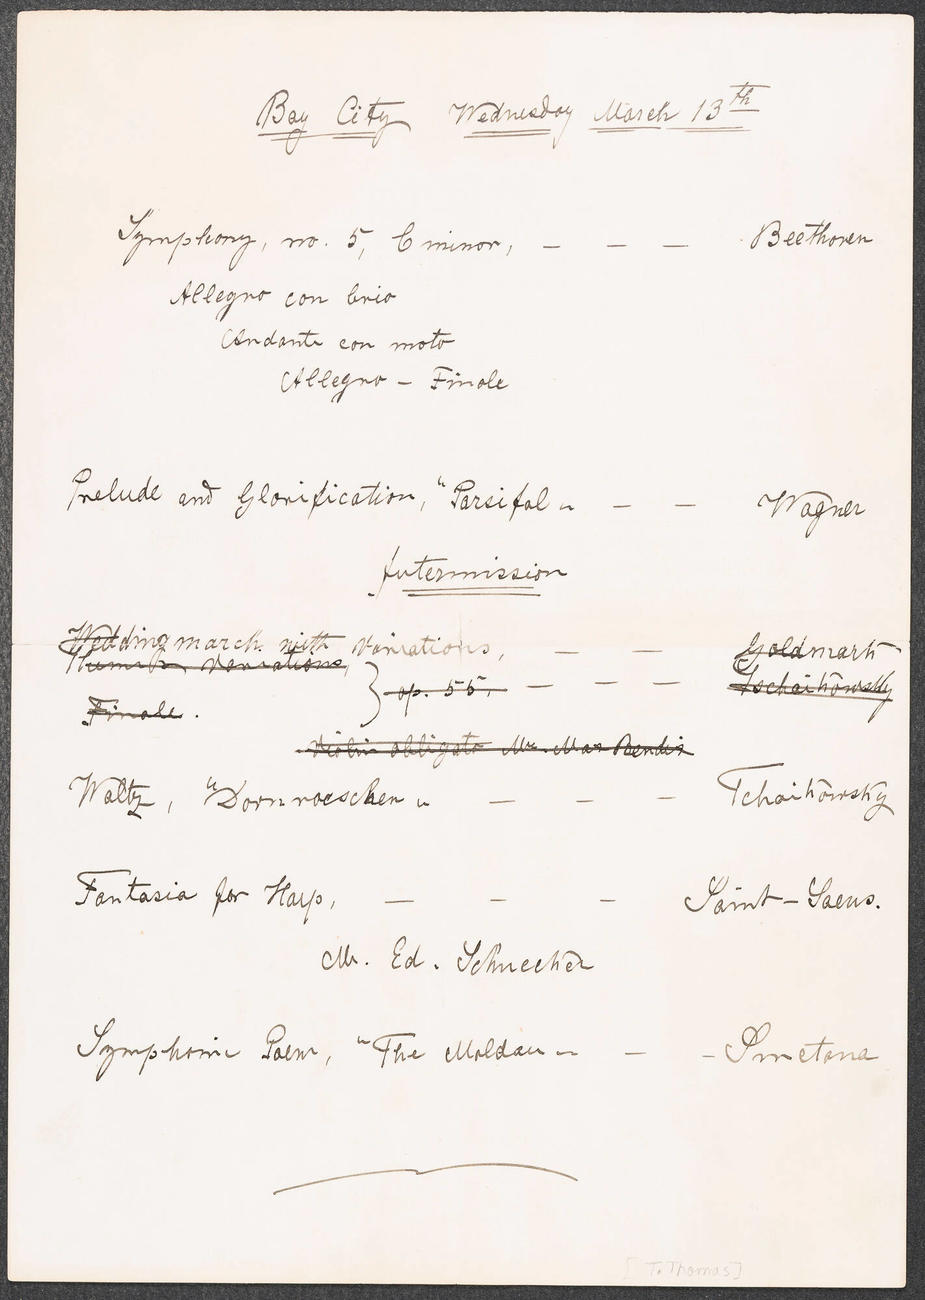 Bay City Wednesday March 13th
Symphony, no. 5, C minor, — — — Beethoven
Allegro con brio
Andante con moto
Allegro – Finale
Prelude and Glorification, "Parsifal" — — Wagner
Intermission
Wedding march with Variations, — — Goldmark
Theme & Variations, Tschaikowsky
Finale. } op. 55. — — —
Violin obligato Mr. Max Bendix
Waltz, "Dornroeschen" — — — Tchaikowsky
Fantasia for Harp, — — — Saint-Saens.
Mr. Ed. Schuecker
Symphonic Poem, "The Moldau" — – Smetana
[T. Thomas]